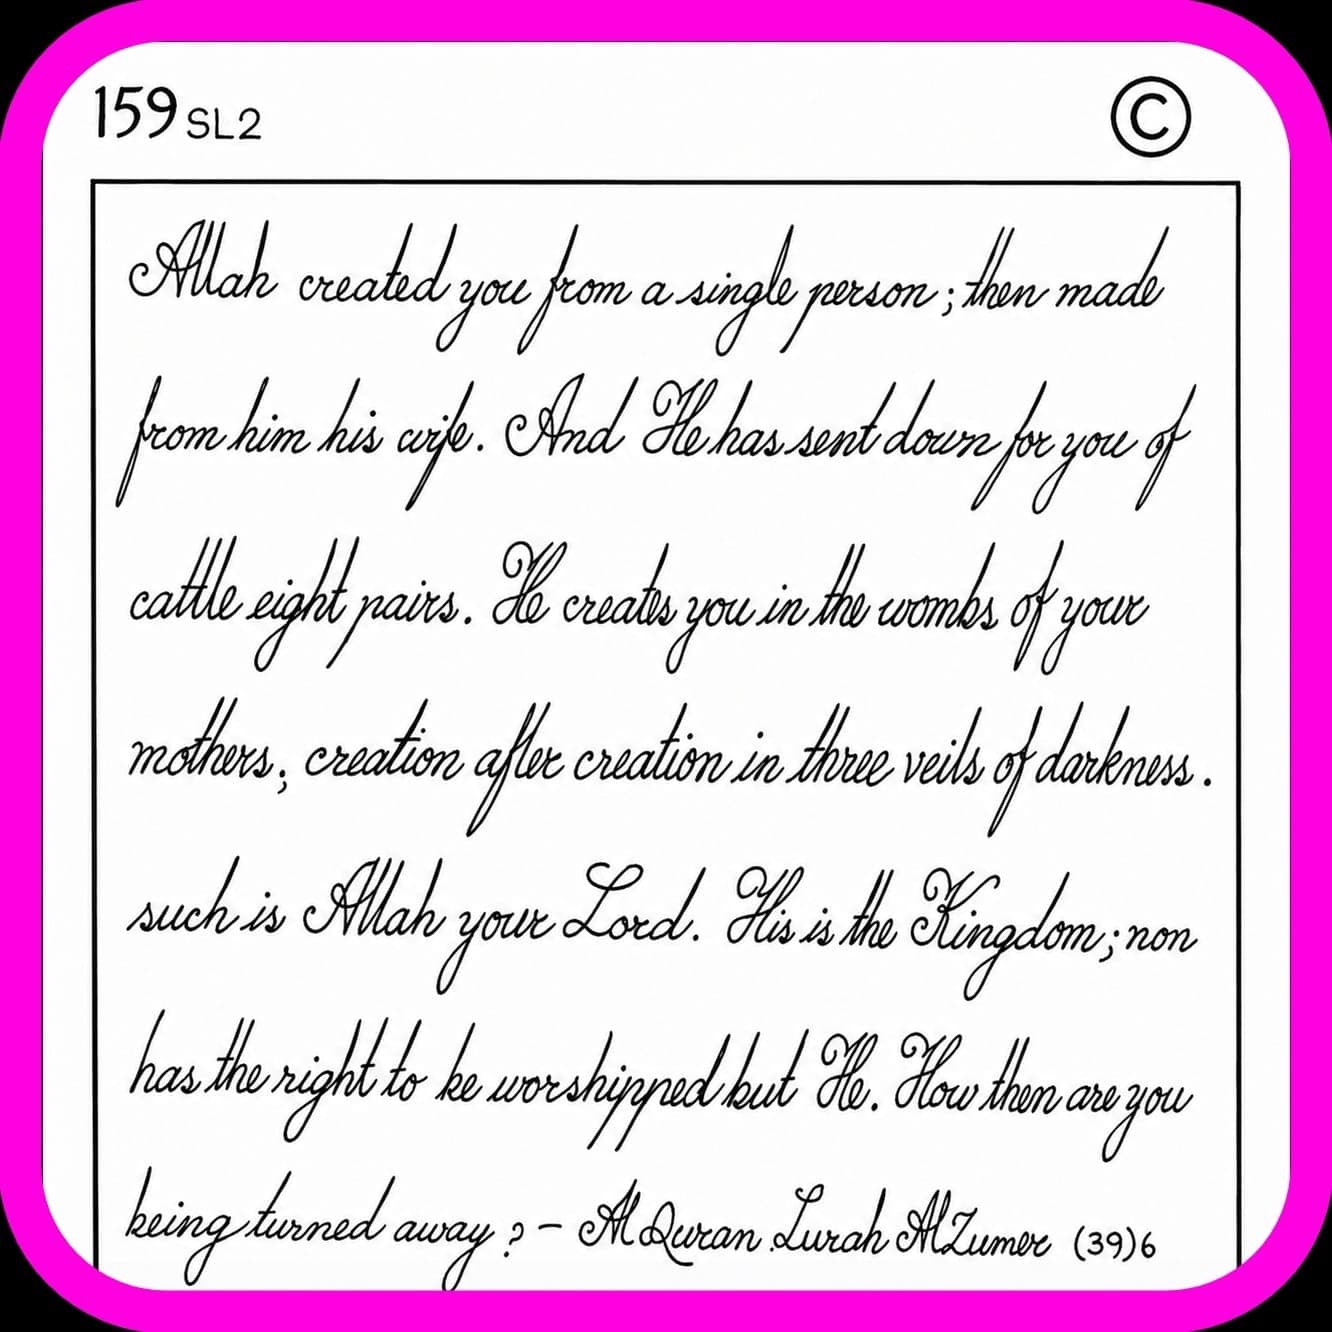 159 SL2 ©
Allah created you from a single person; then made
from him his wife. And He has sent down for you of
cattle eight pairs. He creates you in the wombs of your
mothers, creation after creation in three veils of darkness.
such is Allah your Lord. His is the Kingdom; non
has the right to be worshipped but He. How then are you
being turned away? - Al Quran Surah Al Zumer (39)6